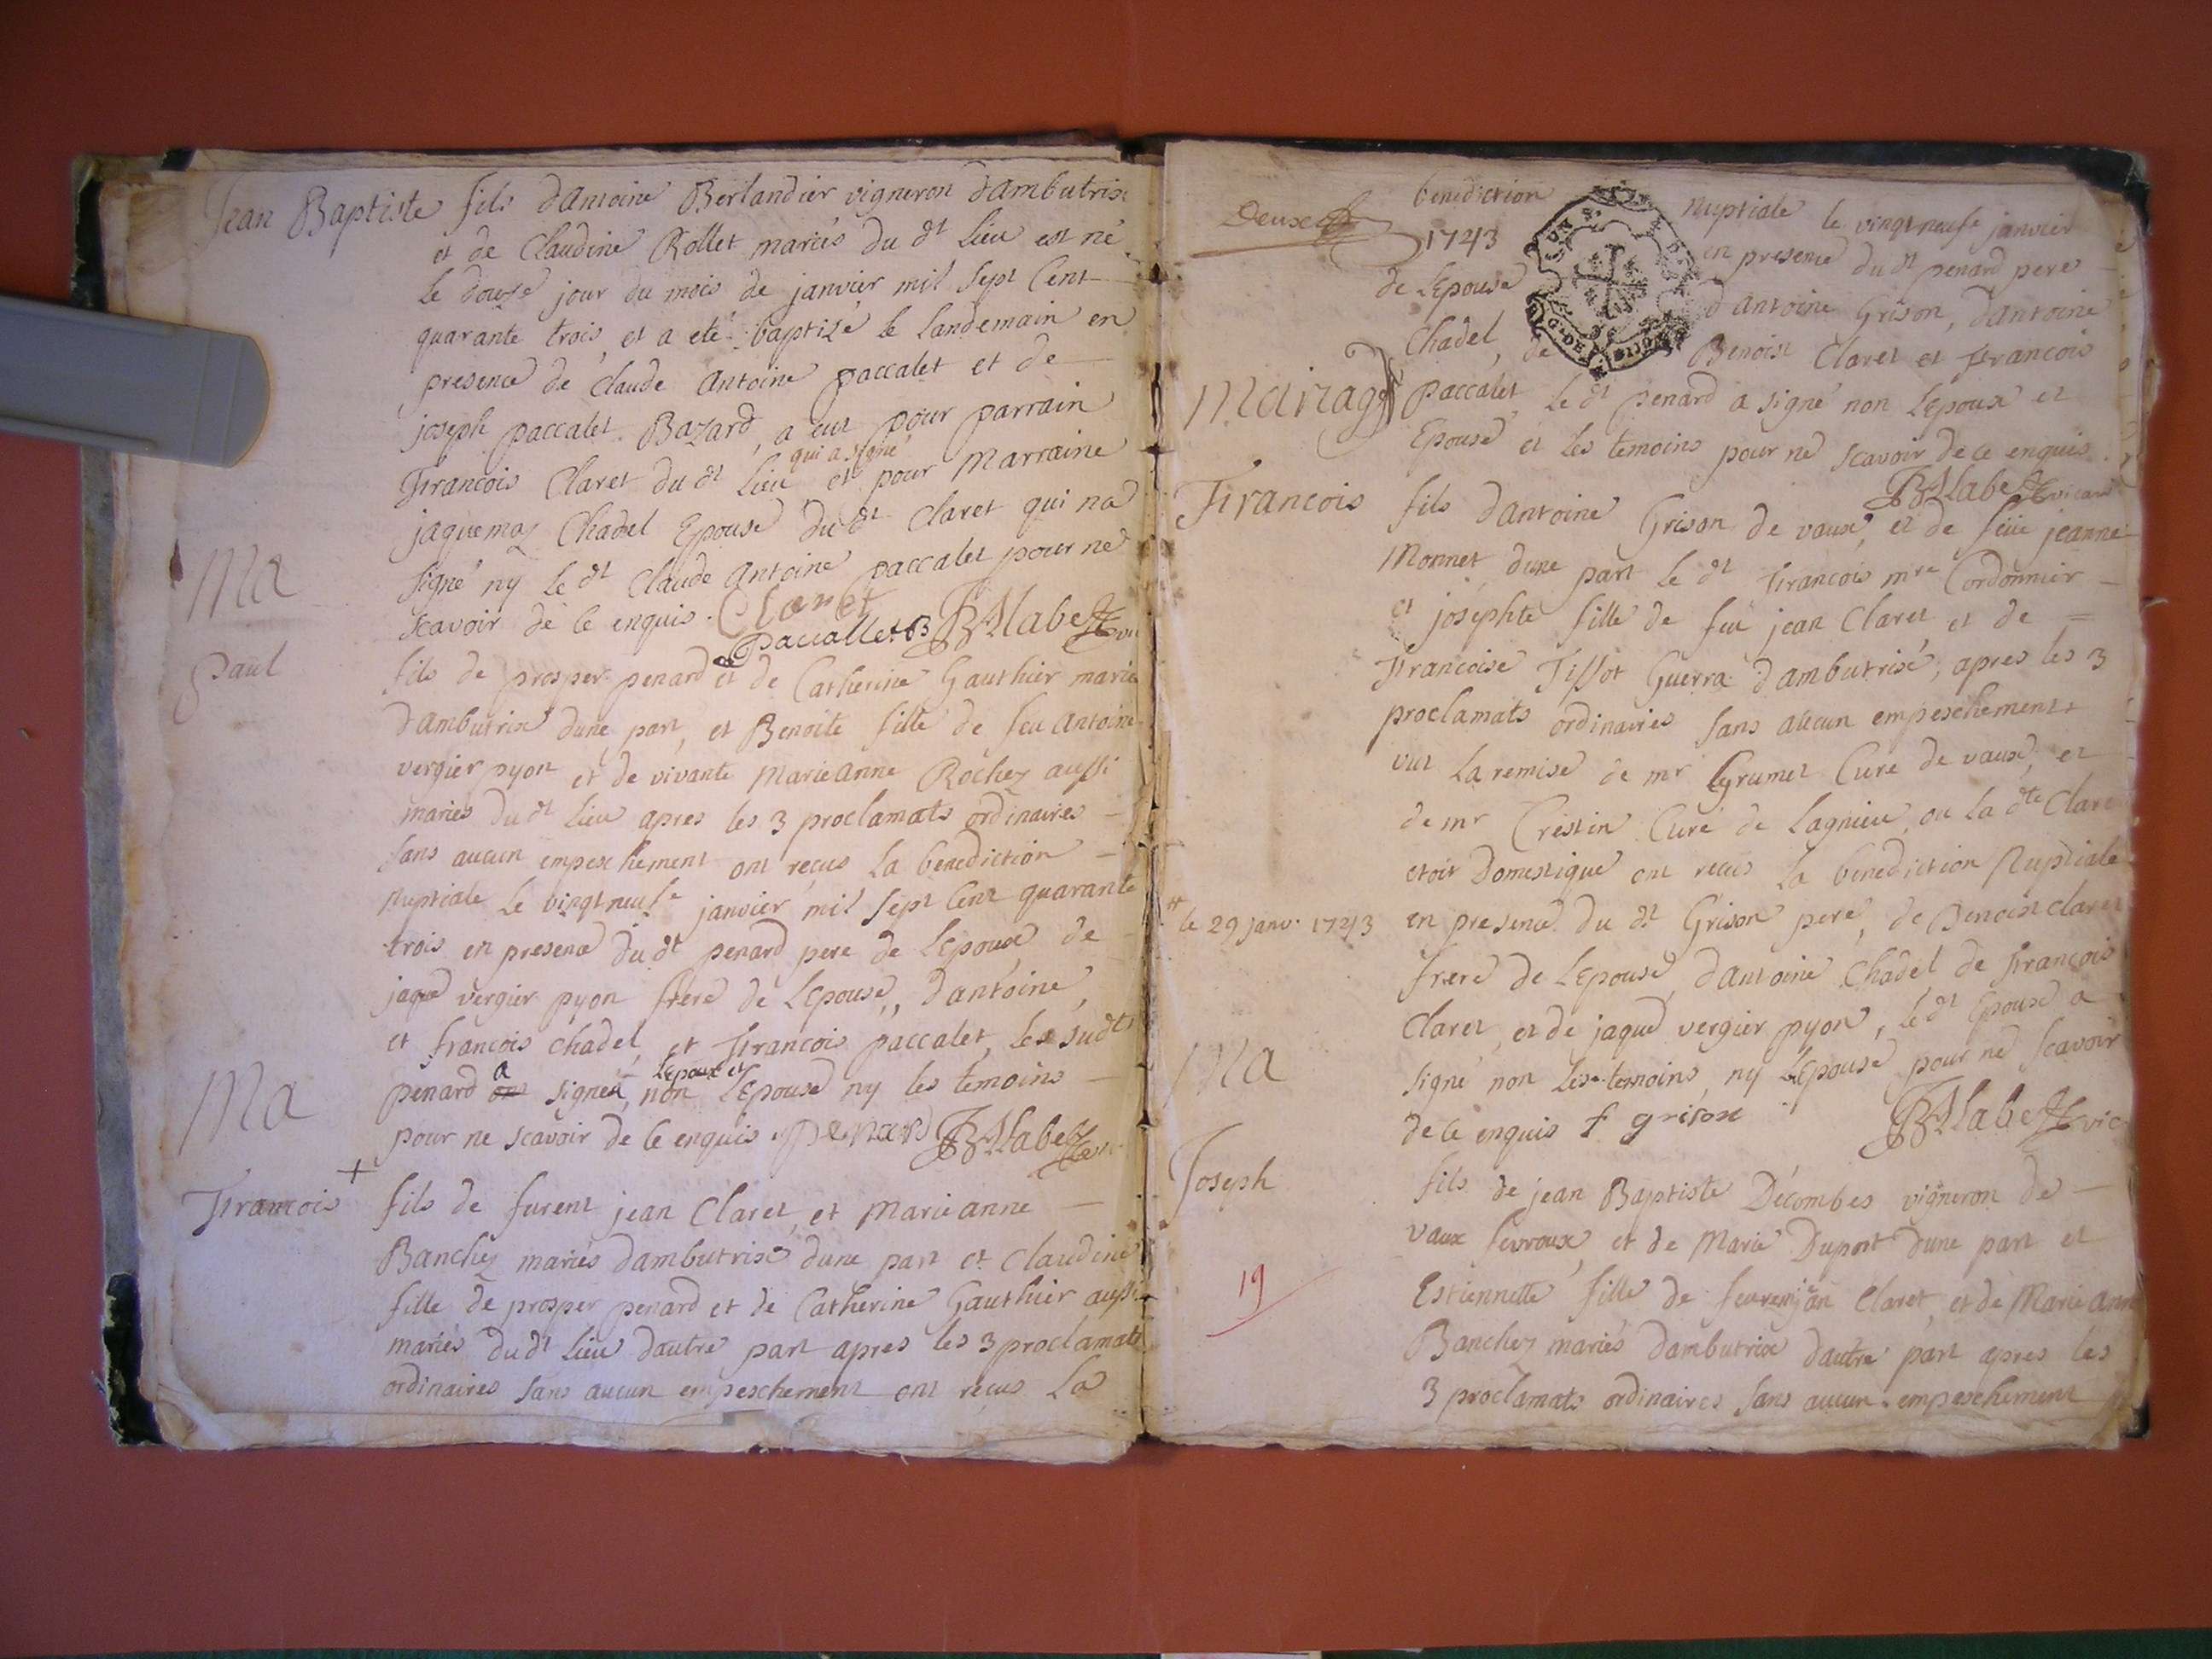 Jean Baptiste fils dAntoine Berlandier vigneron dambutrix
et de Claudine Rollet mariés du dt lieu est né
le douze jour du mois de janvier mil sept Cent
quarante trois, et a eté baptizé le landemain en
presence de claude Antoine paccalet et de
joseph paccalet Bazard, a eut pour parrain
qui a signé
Francois Claret du dt lieu et pour Marraine
jaquemaz Chadel Epouse du dt Claret qui na
signé ny le dt Claude Antoine paccalet pour ne
scavoir de ce enquis. Claret
Paccallet B
Ma
Paul
fils de prosper penard et de Catherine Gauthier marie
dambutrix dune part, et Benoite fille de feu Antoine
vergier pyon et de vivante Marie anne Rochez aussi
maries du dt lieu apres les 3 proclamats ordinaires
sans aucun empeschement ont reçus la benediction
Nuptiale le vingt neufe janvier mil sept Cent quarante
trois en presence du dt penard pere de Lepoux de
jaque vergier pyon frere de Lepouse, dantoine,
et francois chadel, et Francois paccalet, les sudts
a Lepoux et
penard ont signé, non Lepouse ny les temoins
pour ne scavoir de ce enquis. Penard
Ma
Francois +
fils de furent jean Claret, et Marie anne
Banchez mariés dambutrix dune part et Claudine
fille de prosper penard et de Catherine Gauthier aussi
mariés du dt lieu dautre part apres les 3 proclamats
ordinaires sans aucun empeschement ont reçus La
Deux
benediction Nuptiale le vingt neufe janvier
1743 en presence du dt penard pere
de Lepouse dantoine Grison, dantoine
Chadel, de Benoist Claret et Francois
Mariage
paccalet, le dt penard a signé non Lepoux et
Epouse et les temoins pour ne scavoir de ce enquis.
vicaire
Francois fils dantoine Grison de vaux, et de feüe jeanne
Monnet dune part le dt Francois mre Cordonnier
et josephte fille de feu jean Claret et de =
Francoise Tissot Guerra dambutrix, apres les 3
proclamats ordinaires sans aucun empeschement
vut La remise de mr Grumet Curé de vaux, et
de mr Crestin Curé de Lagnieu, ou la dte Claret
etoit Domestique ont recus la benediction Nuptiale
le 29 janv. 1743 en presence du dt Grison pere, de Benoist claret
frere de Lepouse, dantoine Chadel de François
Claret, et de jaque vergier pyon, le dt Epoux a
Ma
signé non les temoins, ny Lepouse pour ne scavoir
de ce enquis f grison vic
Joseph
fils de jean Baptiste Décombes vigneron de
vaux fevroux, et de Marie Duport dune part et
19
Estiennette fille de jean Claret, et de Marie anne
Banchez mariés dambutrix dautre part apres les
3 proclamats ordinaires sans aucun empeschement